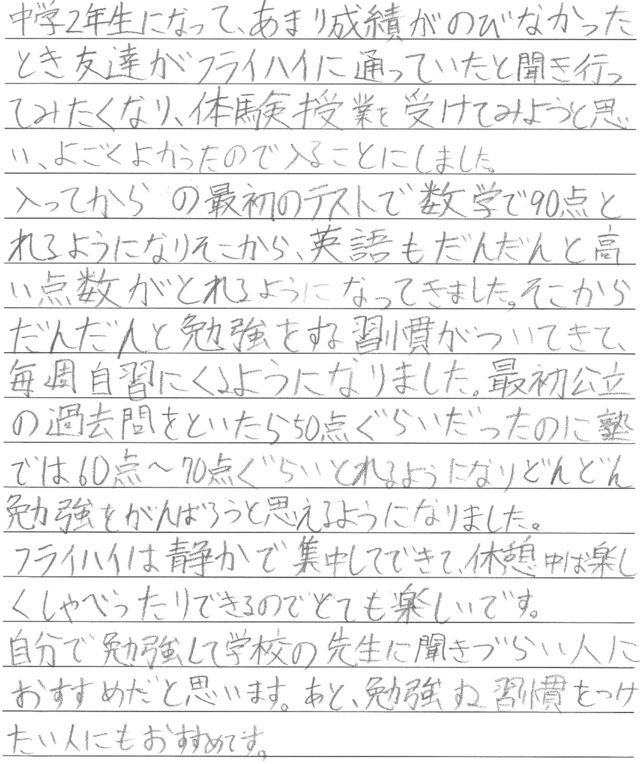 中学2年生になって、あまり成績がのびなかった
とき友達がフライハイに通っていたと聞き行っ
てみたくなり、体験授業を受けてみようと思
い、よごくよかったので入ることにしました。
入ってからの最初のテストで数学で90点と
れるようになりそこから、英語もだんだんと高
い点数がとれるようになってきました。そこから
だんだんと勉強をする習慣がついてきて、
毎週自習にくるようになりました。最初公立
の過去問をといたら50点ぐらいだったのに塾
では60点〜70点ぐらいとれるようになりどんどん
勉強をがんばろうと思えるようになりました。
フライハイは静かで集中してできて、休憩中は楽し
くしゃべったりできるのでとても楽しいです。
自分で勉強して学校の先生に聞きづらい人に
おすすめだと思います。あと、勉強する習慣をつけ
たい人にもおすすめです。